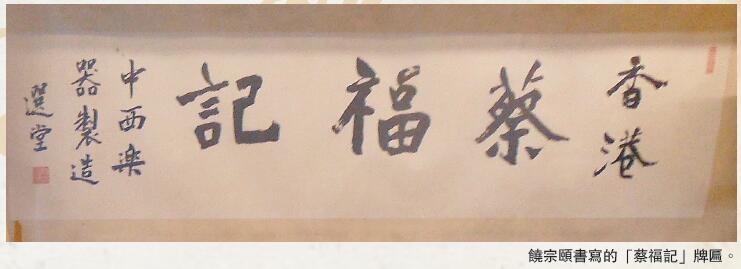 香港
蔡福記
中西楽
器製造
選堂
饒宗頤書寫的「蔡福記」牌匾。